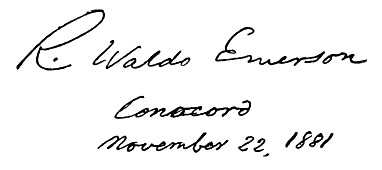 R. Waldo Emerson
November 22, 1881